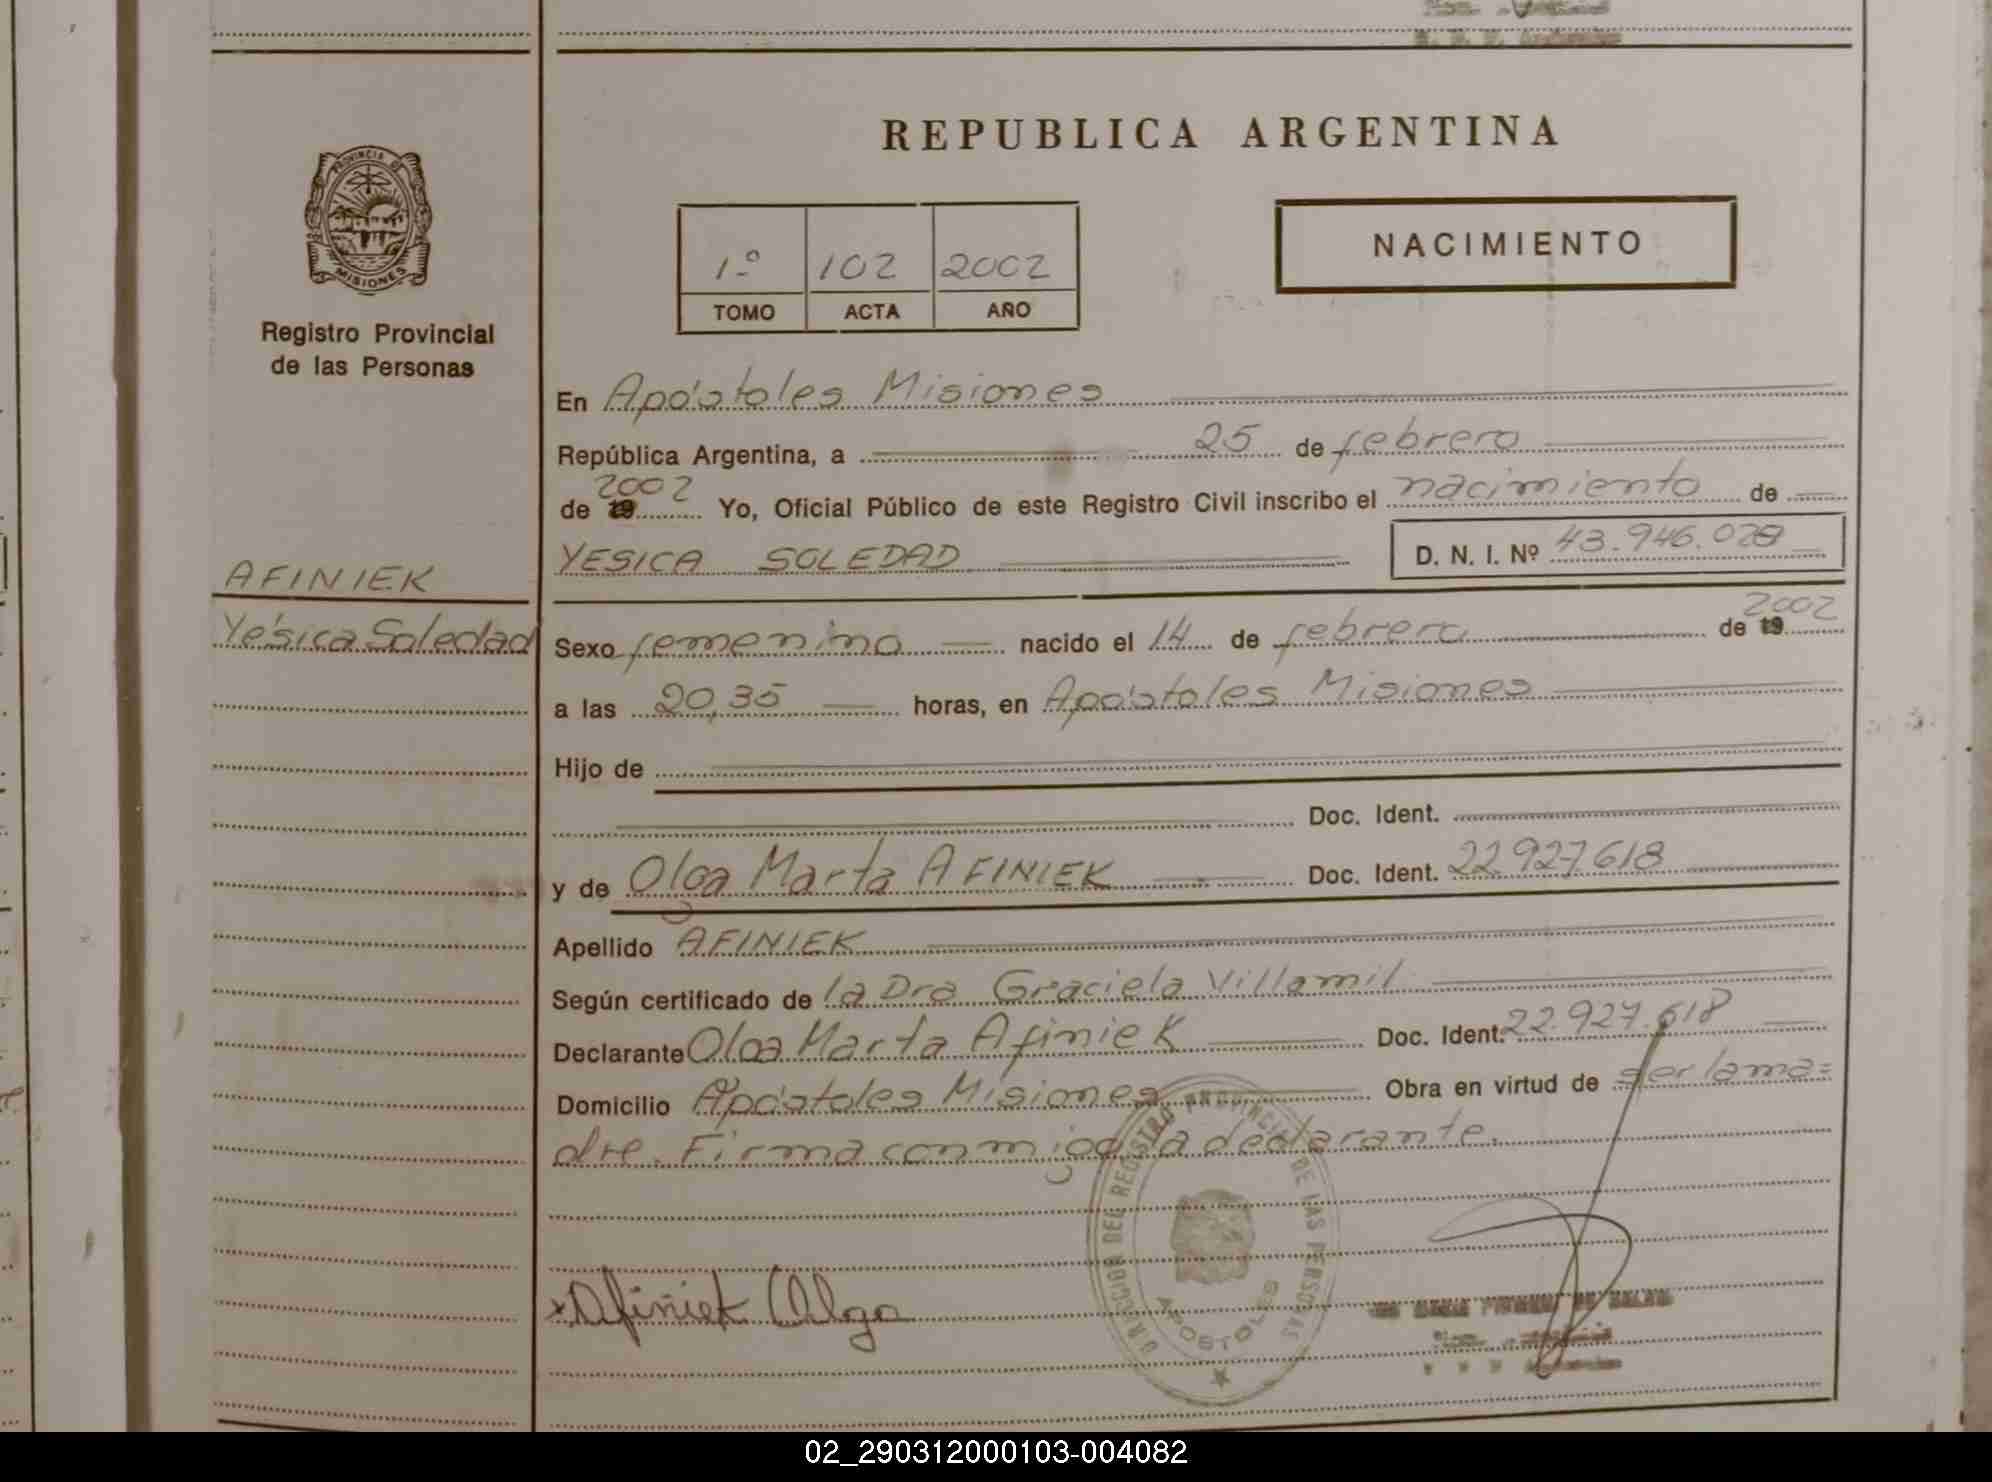 REPUBLICA ARGENTINA
PROVINCIA DE
MISIONES
Registro Provincial
de las Personas
1º 102 2002
TOMO ACTA AÑO
NACIMIENTO
En Apóstoles Misiones
República Argentina, a 25 de febrero
de 19 2002 Yo, Oficial Público de este Registro Civil inscribo el nacimiento de
YESICA SOLEDAD D. N. I. Nº 43.946.028
AFINIEK
Yésica Soledad
Sexo femenino nacido el 14 de febrero de 19 2002
a las 20,35 horas, en Apóstoles Misiones
Hijo de
Doc. Ident.
y de Olga Marta AFINIEK Doc. Ident. 22.927.618
Apellido AFINIEK
Según certificado de la Dra Graciela Villamil
Declarante Olga Marta Afiniek Doc. Ident. 22.927.618
Domicilio Apóstoles Misiones Obra en virtud de ser la ma=
dre. Firma conmigo la declarante.
DIRECCION DEL REGISTRO PROVINCIAL DE LAS PERSONAS
APOSTOLES
x Afiniek Olga
02_290312000103-004082